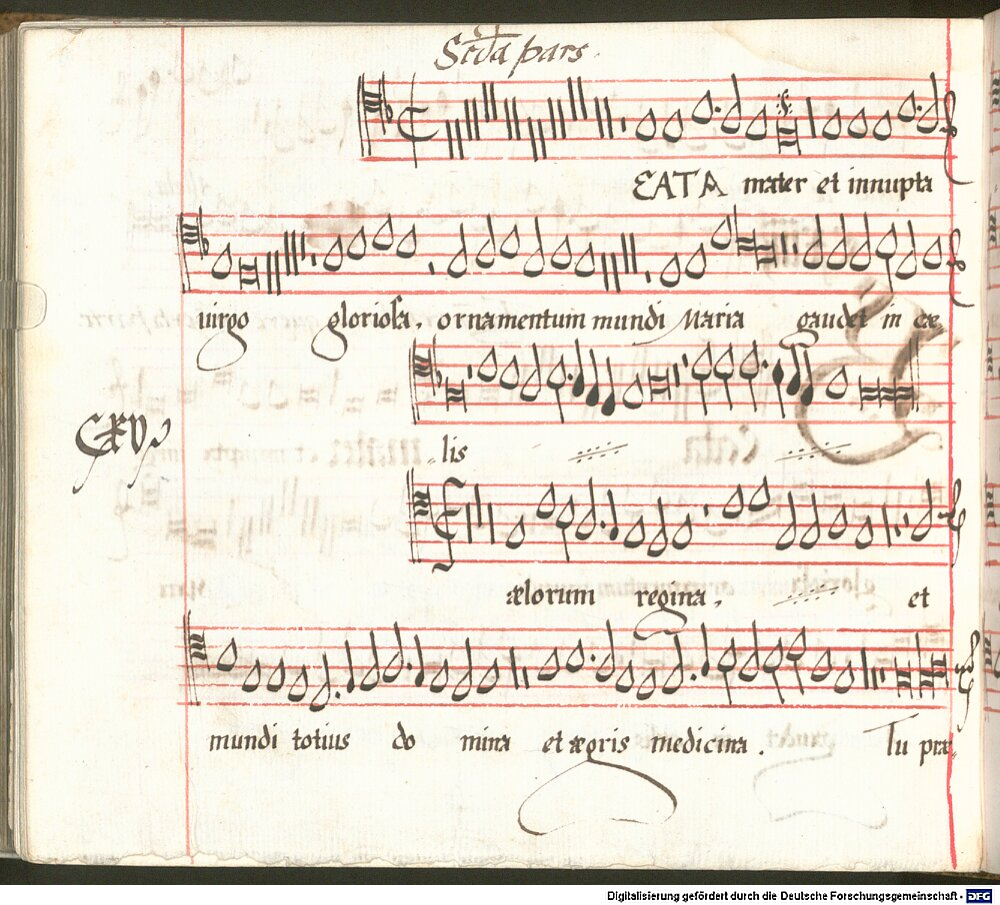 Scda pars.
EATA mater et innupta
uirgo gloriosa, ornamentum mundi Maria gaudet in cæ
lis
ælorum regina, et
mundi totius do mina et ægris medicina. Tu præ
Digitalisierung gefördert durch die Deutsche Forschungsgemeinschaft - DFG